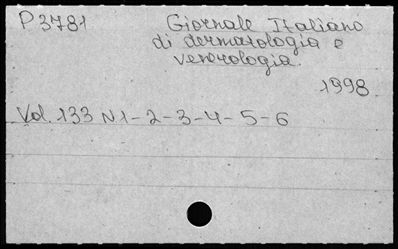 P3781 Giornale Italiano
di dermatologia e
venerologia.
1998
Vol. 133 N1-2-3-4-5-6